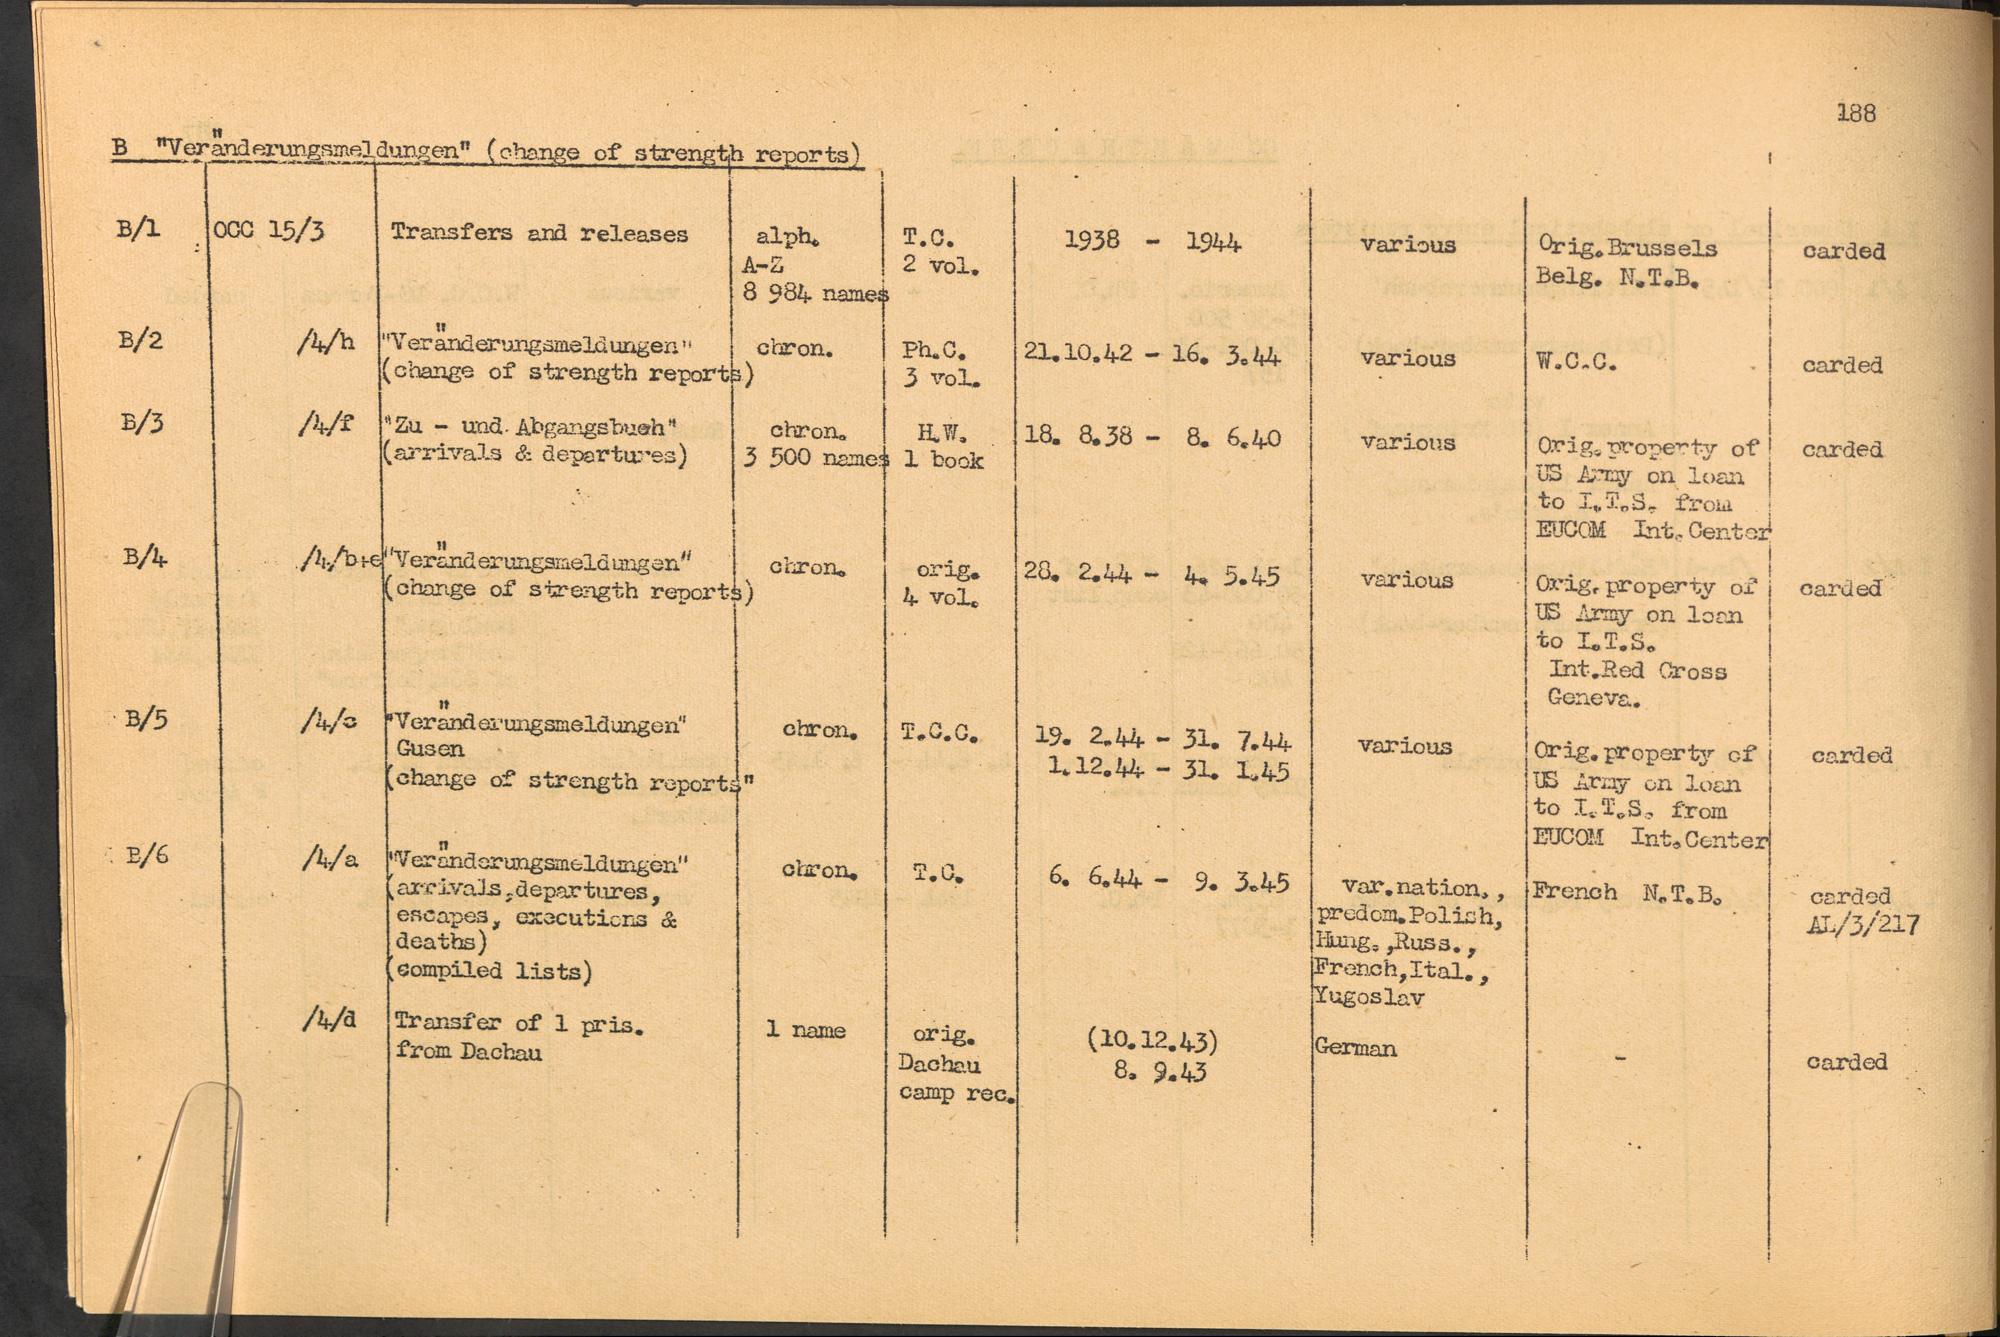 188
B "Veränderungsmeldungen" (change of strength reports)
B/1 OCC 15/3 Transfers and releases alph. T.C. 1938 - 1944 various Orig.Brussels carded
A-Z 2 vol. Belg. N.T.B.
8 984 names
B/2 /4/h "Veränderungsmeldungen" chron. Ph.C. 21.10.42 - 16. 3.44 various W.C.C. carded
(change of strength reports) 3 vol.
B/3 /4/f "Zu - und Abgangsbuch" chron. H.W. 18. 8.38 - 8. 6.40 various Orig.property of carded
(arrivals & departures) 3 500 names 1 book US Army on loan
to I.T.S. from
EUCOM Int.Center
B/4 /4/b+e "Veränderungsmeldungen" chron. orig. 28. 2.44 - 4. 5.45 various Orig.property of carded
(change of strength reports) 4 vol. US Army on loan
to I.T.S.
Int.Red Cross
Geneva.
B/5 /4/c "Veränderungsmeldungen" chron. T.C.C. 19. 2.44 - 31. 7.44 various Orig.property of carded
Gusen 1.12.44 - 31. 1.45 US Army on loan
(change of strength reports" to I.T.S. from
EUCOM Int.Center
B/6 /4/a "Veränderungsmeldungen" chron. T.C. 6. 6.44 - 9. 3.45 var.nation., French N.T.B. carded
(arrivals,departures, predom.Polish, AL/3/217
escapes, executions & Hung.,Russ.,
deaths) French,Ital.,
(compiled lists) Yugoslav
/4/d Transfer of 1 pris. 1 name orig. (10.12.43) German - carded
from Dachau Dachau 8. 9.43
camp rec.